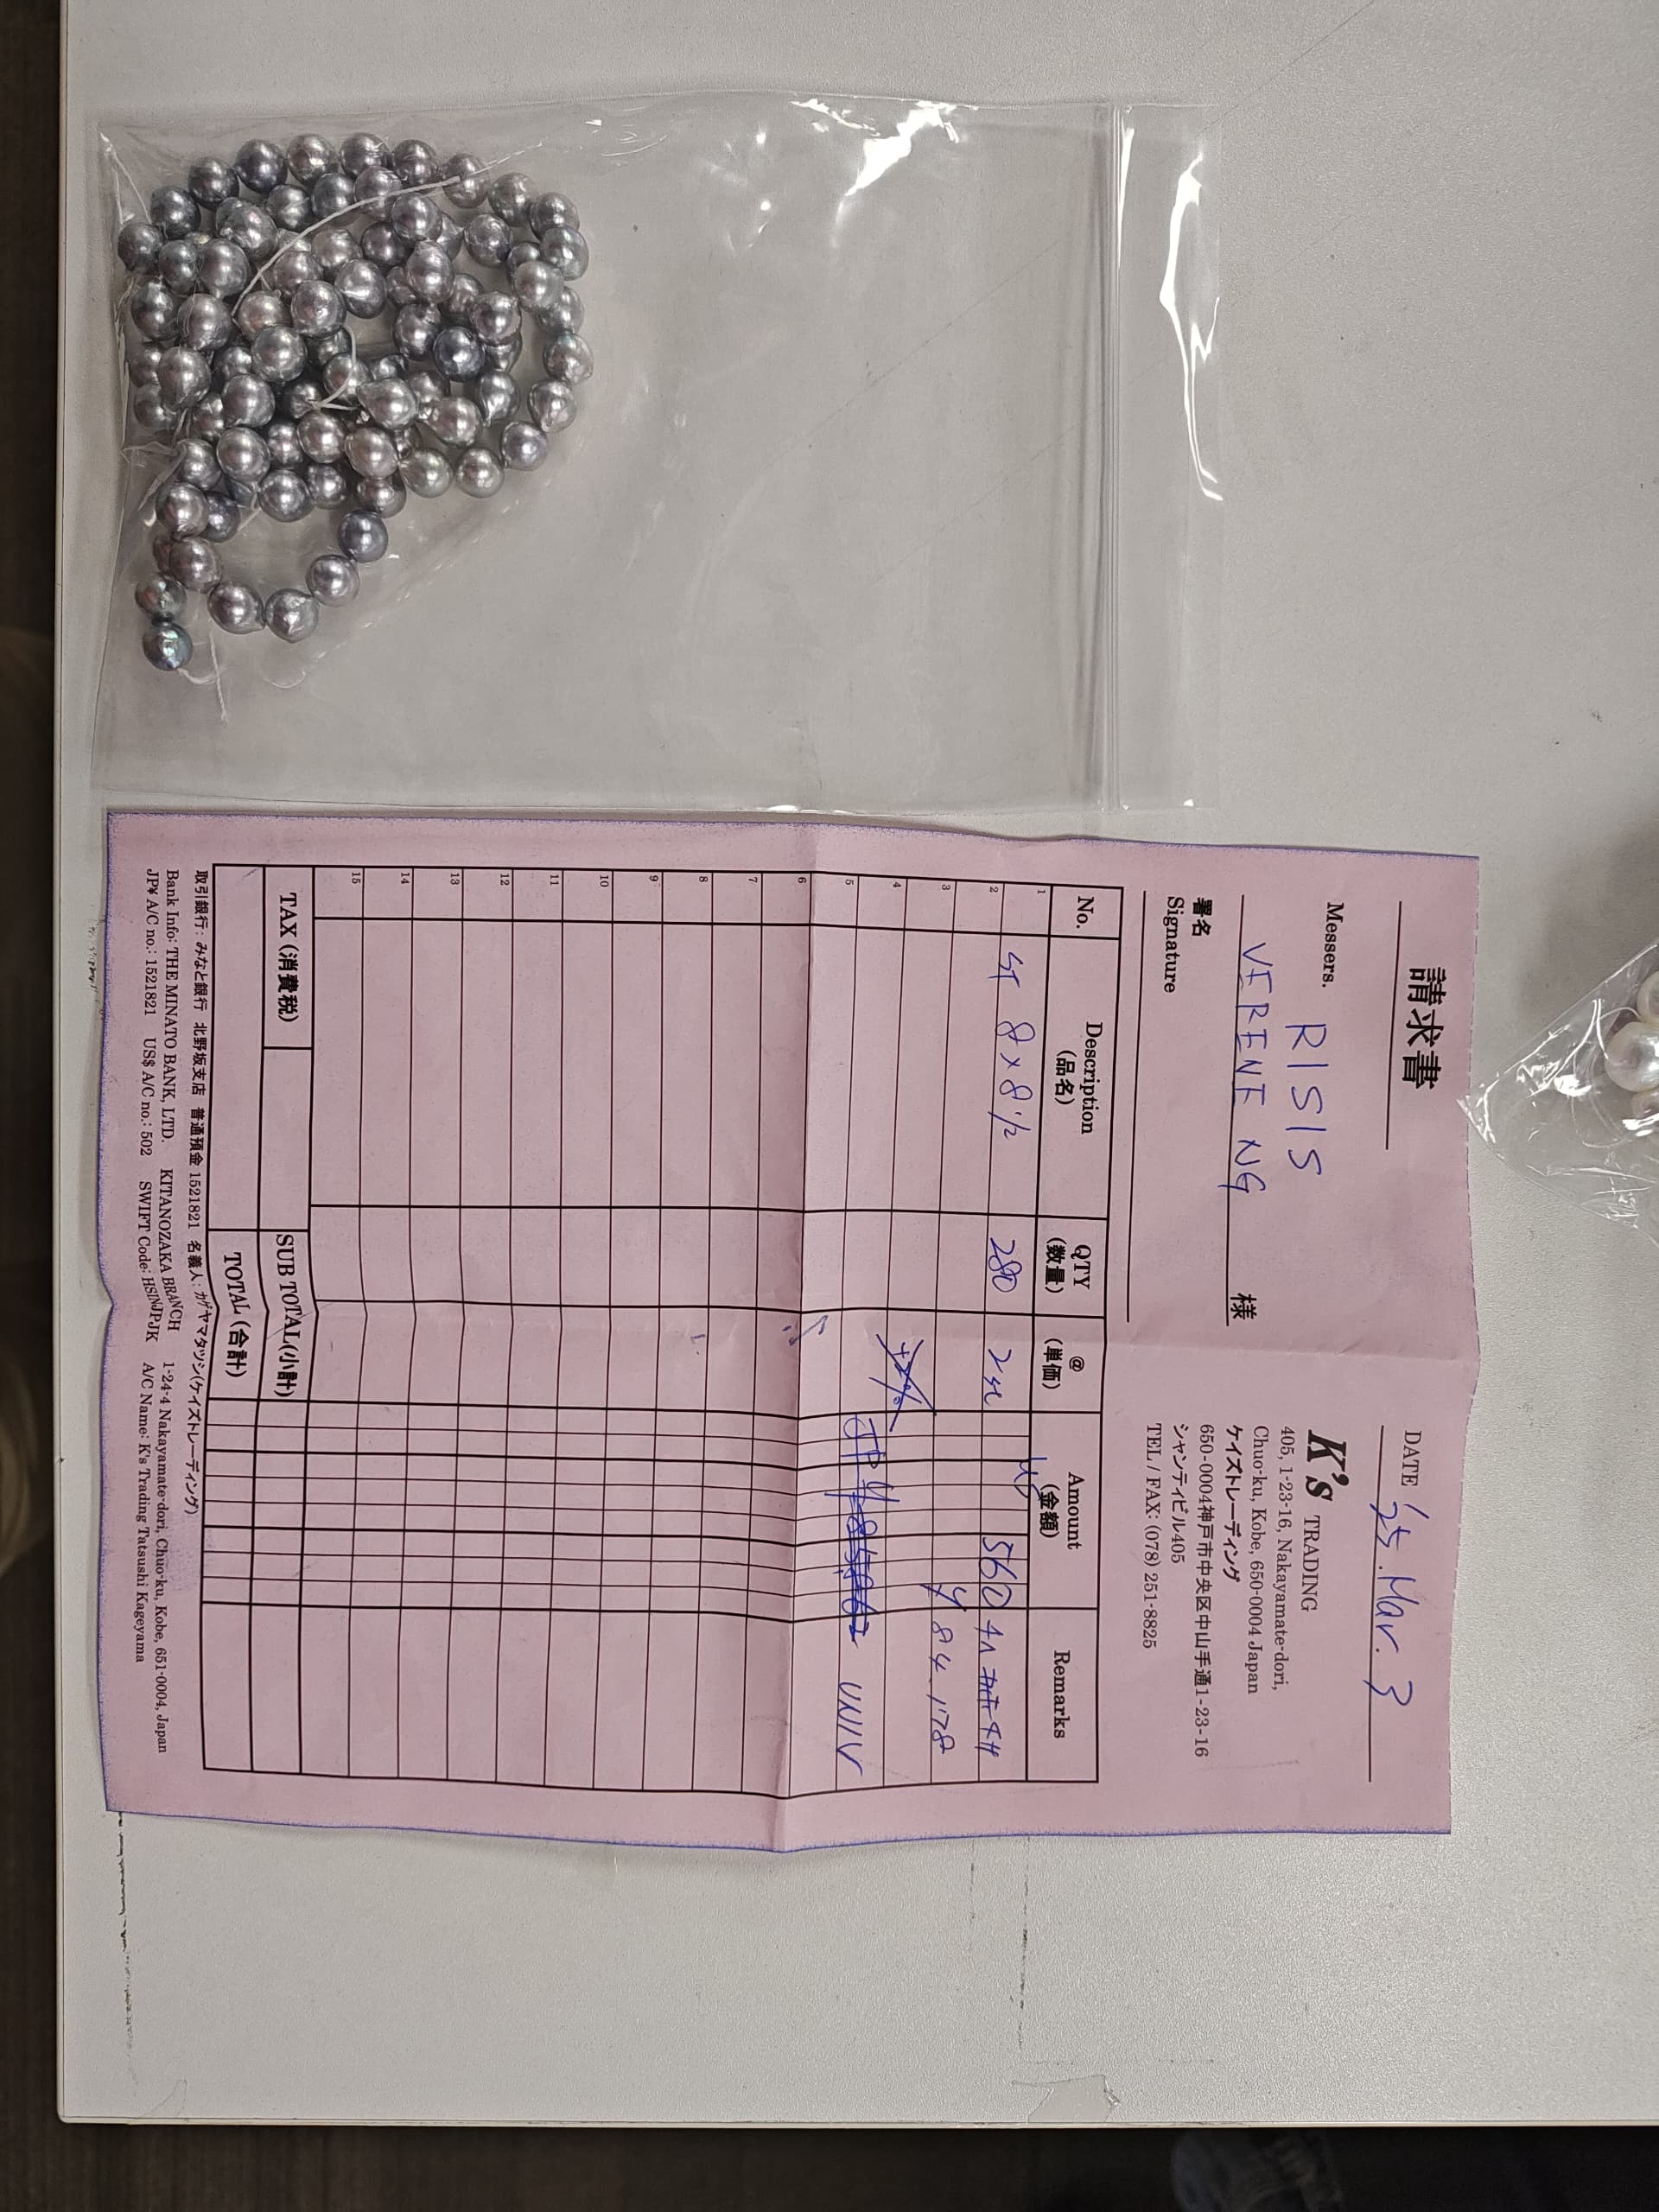 請求書
DATE '25. Mar. 3
Messers. RISIS
VERENE NG 様
署名
Signature
K's TRADING
405, 1-23-16, Nakayamate-dori,
Chuo-ku, Kobe, 650-0004 Japan
ケイズトレーディング
650-0004神戸市中央区中山手通1-23-16
シャンティビル405
TEL / FAX: (078) 251-8825
No. Description (品名) QTY (数量) @ (単価) Amount (金額) Remarks
1
2 ST 8 x 8 1/2 280 2st 560
3 ¥ 84.178
4
5 JP ¥ UNIV
6
7
8
9
10
11
12
13
14
15
TAX (消費税) SUB TOTAL(小計)
TOTAL (合計)
取引銀行: みなと銀行 北野坂支店 普通預金 1521821 名義人: カゲヤマタツシ(ケイズトレーディング)
Bank Info: THE MINATO BANK, LTD. KITANOZAKA BRANCH 1-24-4 Nakayamate-dori, Chuo-ku, Kobe, 651-0004, Japan
JP¥ A/C no.: 1521821 US$ A/C no.: 502 SWIFT Code: HSINJPJK A/C Name: K's Trading Tatsushi Kageyama